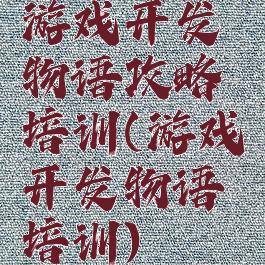 游戏开发
物语攻略
培训(游戏
开发物语
培训)